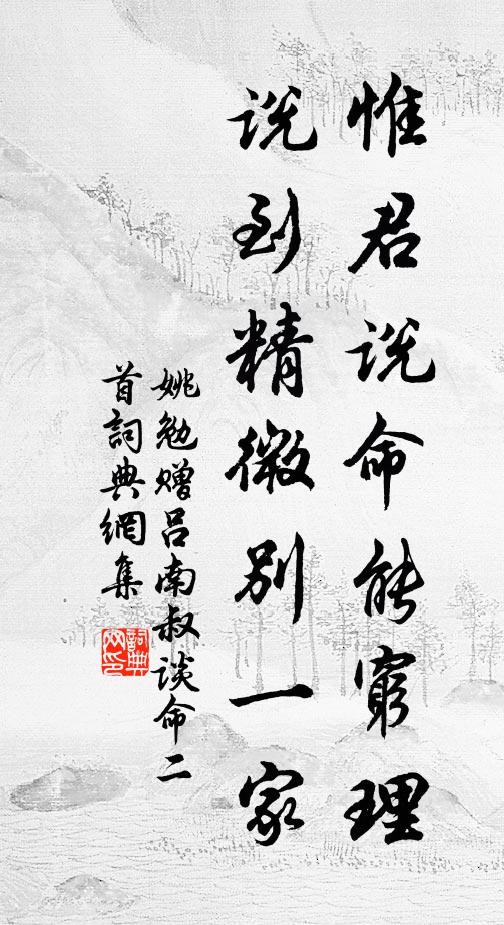 惟君说命能窮理
说到精微别一家
姚勉赠吕南叔谈命二
首詞典網集
詞典
網印